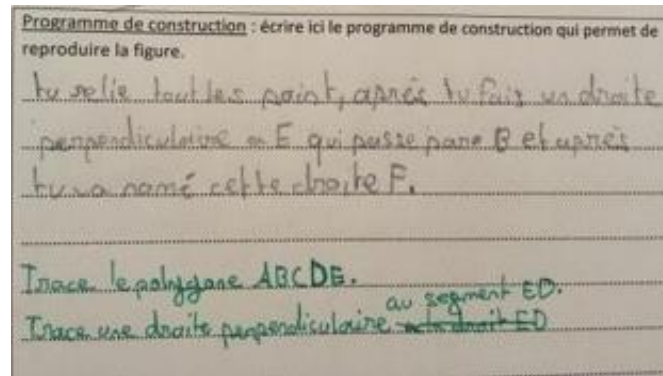 Programme de construction : écrire ici le programme de construction qui permet de
reproduire la figure.
tu relie tout les point, après tu fait un droite
perpendiculaire a E qui passe pare B et après
tu va namé cette droite F.
Trace le polygone ABCDE.
au segment ED.
Trace une droite perpendiculaire droit ED